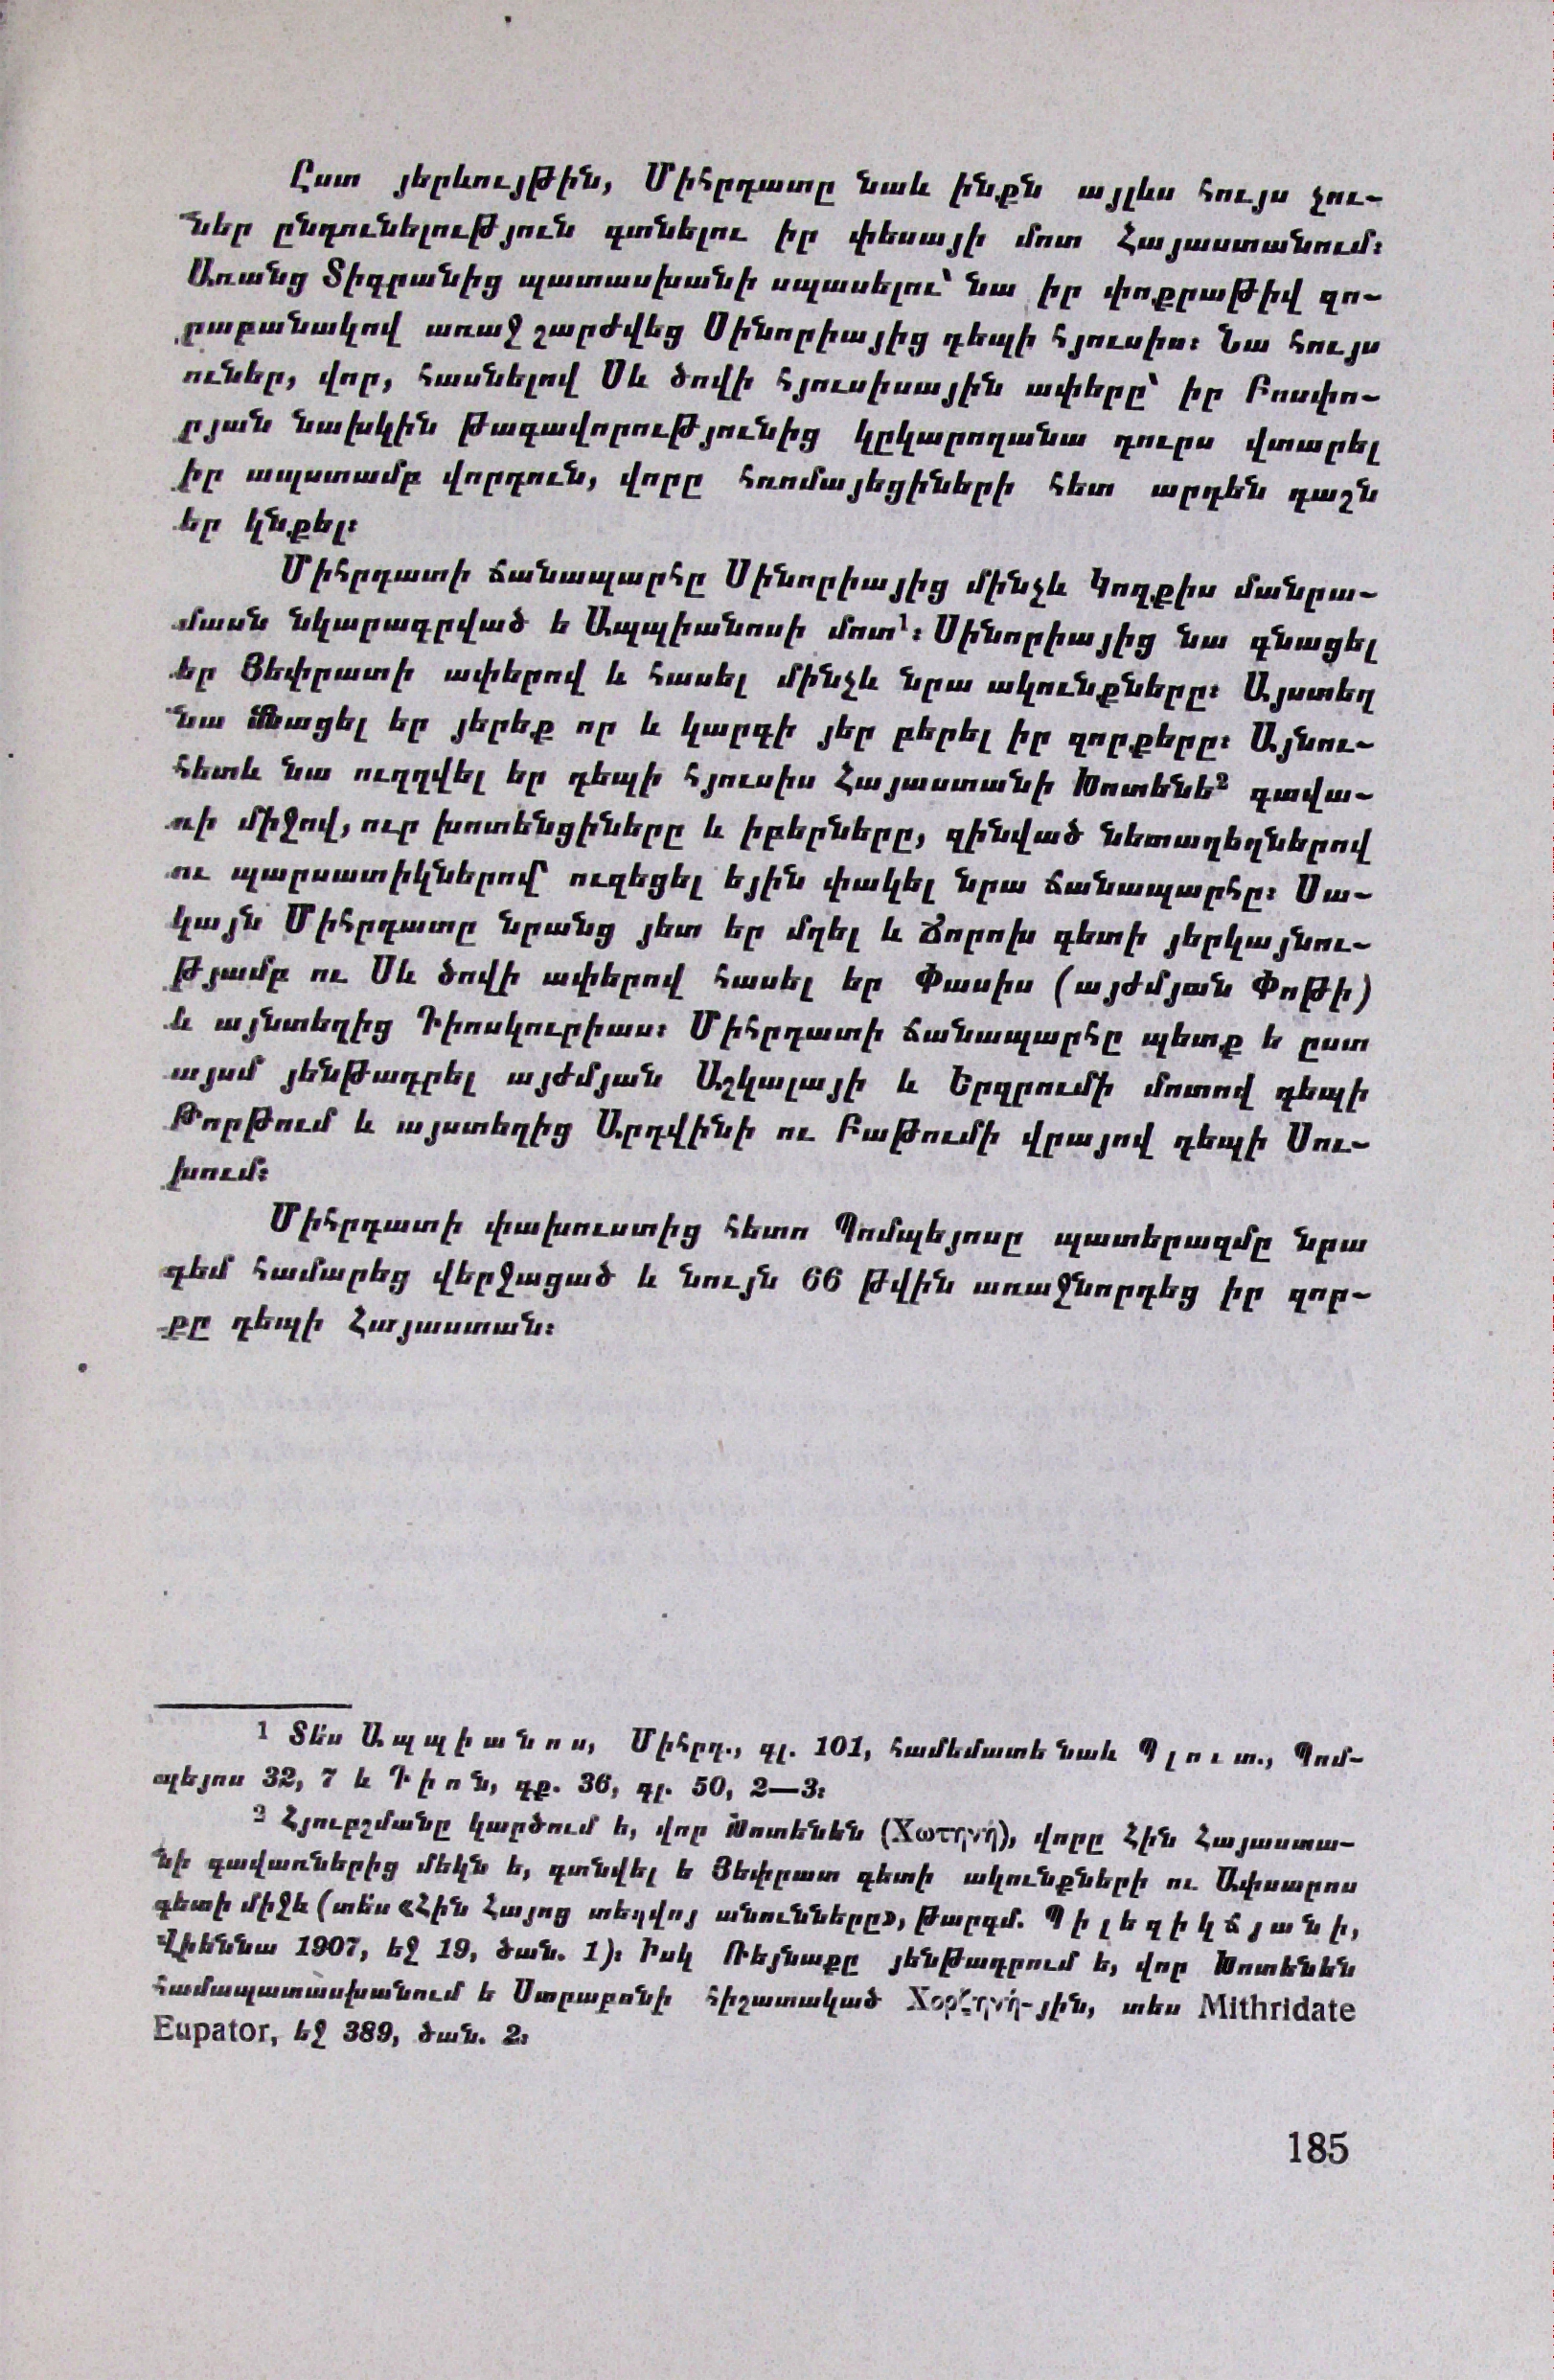 Ըստ յերևույթին, Միհրդատը նաև ինքն այլևս հույս չու-
ներ ընդունելություն գտնելու իր փեսայի մոտ Հայաստանում։
Առանց Տիգրանից պատասխանի սպասելու՝ նա իր փոքրաթիվ զո-
րաբանակով առաջ շարժվեց Սինորիայից դեպի հյուսիս։ Նա հույս
ուներ, վոր, հասնելով Սև ծովի հյուսիսային ափերը՝ իր Բոսփո-
րյան նախկին թագավորությունից կըկարողանա դուրս վտարել
իր ապստամբ վորդուն, վորը հռոմայեցիների հետ արդեն դաշն
եր կնքել։
Միհրդատի ճանապարհը Սինորիայից մինչև Կողքիս մանրա-
մասն նկարագրված ե Ապպիանոսի մոտ¹։ Սինորիայից նա գնացել
եր Յեփրատի ափերով և հասել մինչև նրա ակունքները։ Այստեղ
նա մնացել եր յերեք որ և կարգի յեր բերել իր զորքերը։ Այնու-
հետև նա ուղղվել եր դեպի հյուսիս Հայաստանի Խոտենե² գավա-
ռի միջով, ուր խոտենցիները և իբերները, զինված նետաղեղներով
ու պարսատիկներով՝ ուզեցել եյին փակել նրա ճանապարհը։ Սա-
կայն Միհրդատը նրանց յետ եր մղել և Ճորոխ գետի յերկայնու-
թյամբ ու Սև ծովի ափերով հասել եր Փասիս (այժմյան Փոթի)
և այնտեղից Դիոսկուրիաս։ Միհրդատի ճանապարհը պետք ե ըստ
այսմ յենթադրել այժմյան Աշկալայի և Երզրումի մոտով դեպի
Թորթում և այստեղից Արդվինի ու Բաթումի վրայով դեպի Սու-
խում։
Միհրդատի փախուստից հետո Պոմպեյոսը պատերազմը նրա
դեմ համարեց վերջացած և նույն 66 թվին առաջնորդեց իր զոր-
քը դեպի Հայաստան։
¹ Տե՛ս Ապպիանոս, Միհրդ., գլ. 101, համեմատե նաև Պլուտ., Պոմ-
պեյոս 32, 7 և Դիոն, գք. 36, գլ. 50, 2—3։
² Հյուբշմանը կարծում ե, վոր Խոտենեն (Χωτηνή), վորը Հին Հայաստա-
նի գավառներից մեկն ե, գտնվել ե Յեփրատ գետի ակունքների ու Ափսարոս
գետի միջև (տե՛ս «Հին Հայոց տեղվոյ անունները», թարգմ. Պիլեզիկճյանի,
Վիեննա 1907, եջ 19, ծան. 1)։ Իսկ Ռեյնաքը յենթադրում ե, վոր Խոտենեն
համապատասխանում ե Ստրաբոնի հիշատակած Χορζηνή-յին, տես Mithridate
Eupator, եջ 389, ծան. 2։
185